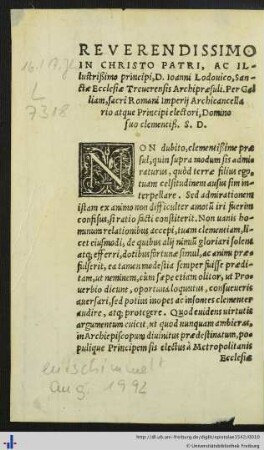 REVERENDISSIMO
IN CHRISTO PATRI, AC IL-
lustrissimo principi, D. Ioanni Lodouico, San-
ctæ Ecclesiæ Treuerensis Archipræsuli. Per Gal-
liam, sacri Romani Imperij Archicancella
rio atque Principi electori, Domino
suo clementiß. S. D.
16.
L
7318
NON dubito, clementißime præ
sul, quin supra modum sis admi
raturus, quòd terræ filius ego,
tuam celsitudinem ausus sim in-
terpellare. Sed admirationem
istam ex animo non difficulter amoliri fuerim
confisus, si ratio facti constiterit. Non uanis ho-
minum relationibus accepi, tuam clementiam, li-
cet eiusmodi, de quibus alij nimiũ gloriari solent
atq; efferri, dotibus fortunæ simul, ac animi præ-
fulserit, ea tamen modestia semper fuisse prædi-
tam, ut neminem, cùm sæpe etiam olitor, ut Pro-
uerbio dicunt, oportuna loquutus, consueueris
auersari, sed potius inopes ac insontes clementer
audire, atq; protegere. Quod euidens uirtutis
argumentum euicit, ut quod nunquam ambieras,
in Archiepiscopum diuinitus prædestinatum, po-
pulique Principem sis electus à Metropolitanis
Ecclesiæ
entschimmelt
Aug. 1992
http://dl.ub.uni-freiburg.de/diglit/epistolae1542/0010
© Universitätsbibliothek Freiburg